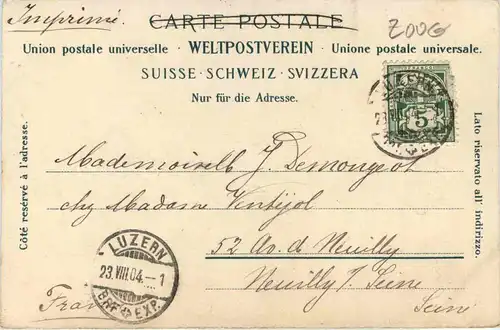 Imprimé
CARTE POSTALE
ZOUG
Union postale universelle · WELTPOSTVEREIN · Unione postale universale.
SUISSE · SCHWEIZ · SVIZZERA
Nur für die Adresse.
LUZERN
5
Côté réservé à l'adresse.
Lato riservato all' indirizzo.
Mademoiselle J. Demongeot
chez Madame
52 Av. de Neuilly
Neuilly s/ Seine
Seine
LUZERN
23.VIII.04.–1
BRF. EXP.